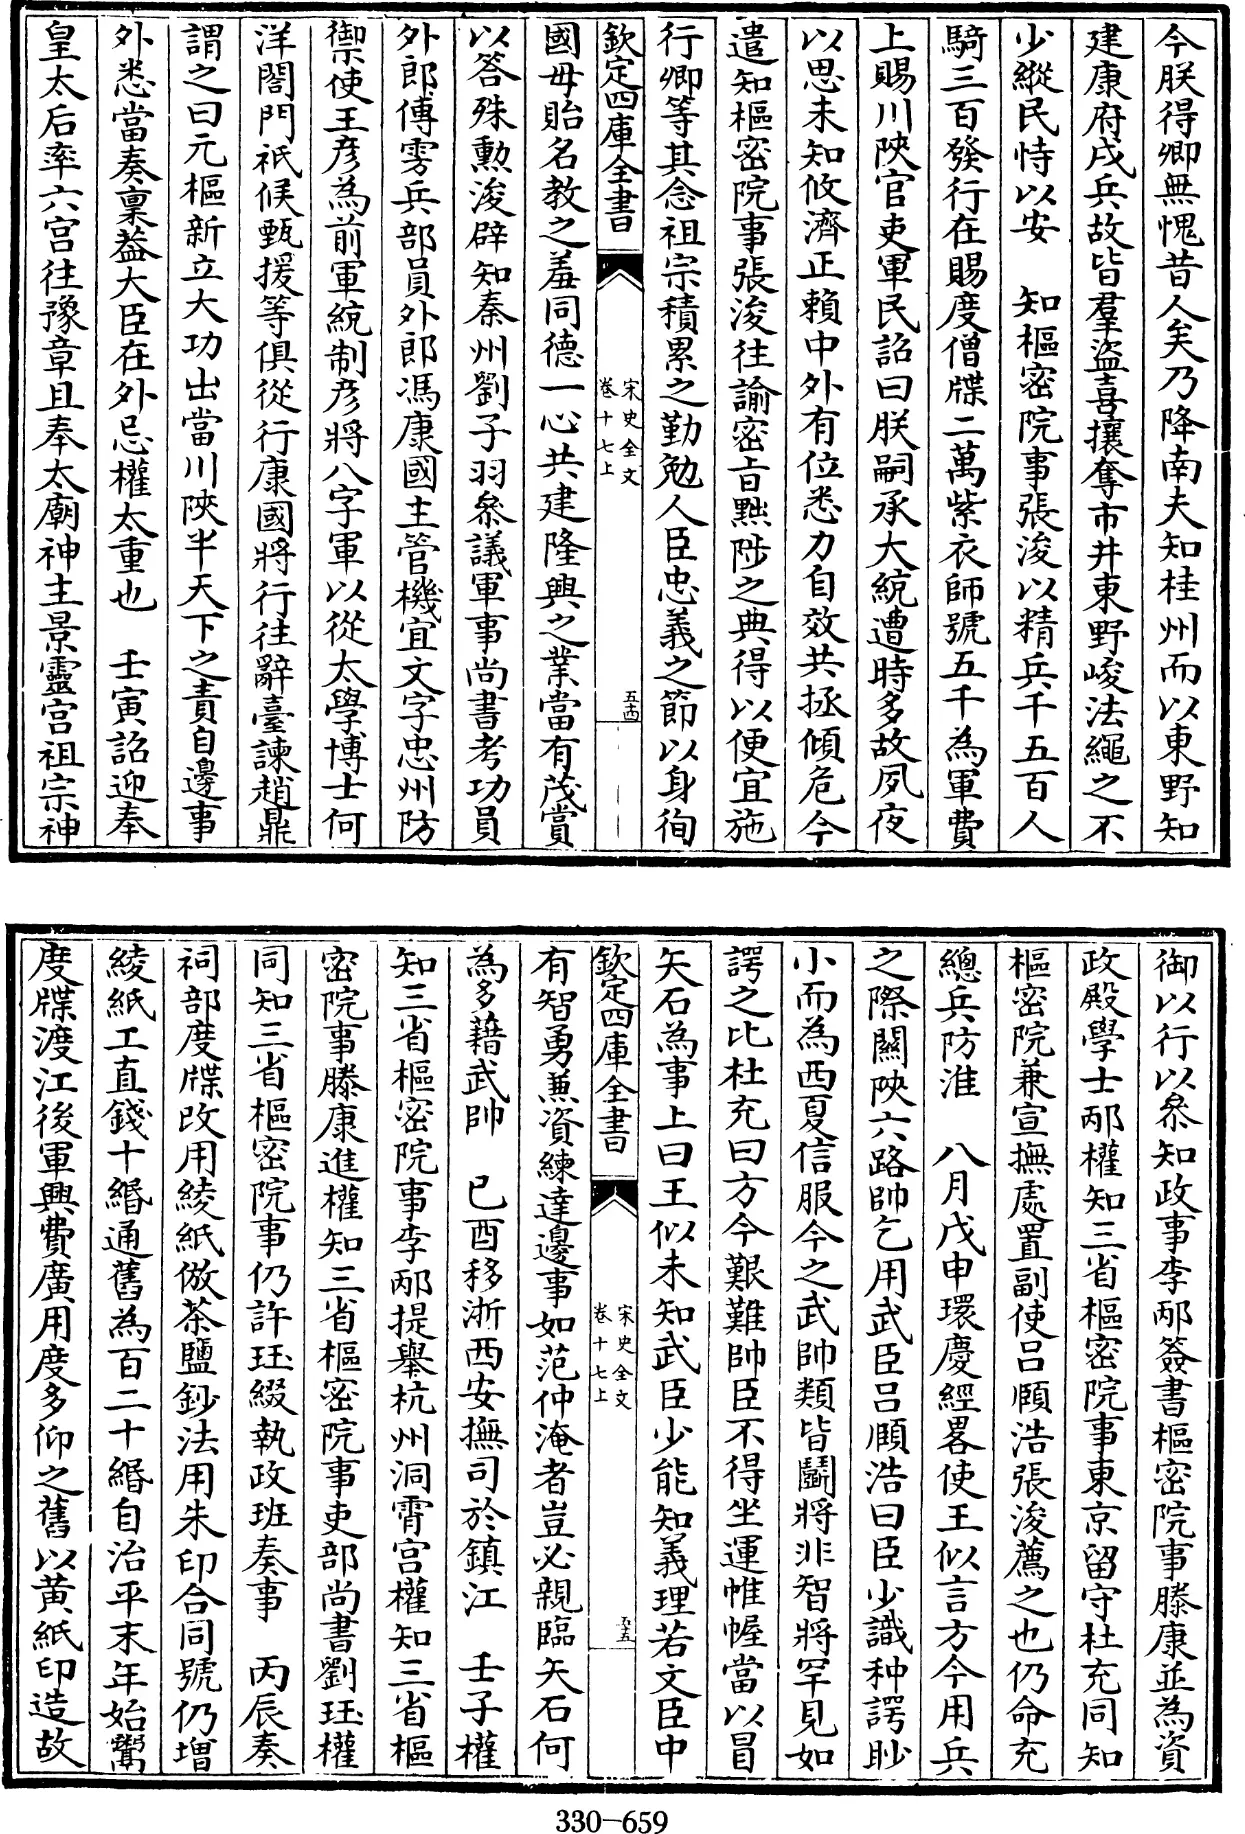 今朕得卿無愧昔人矣乃降南夫知桂州而以東野知
建康府戍兵故皆羣盜喜攘奪市井東野峻法繩之不
少縱民恃以安　知樞密院事張浚以精兵千五百人
騎三百發行在賜度僧牒二萬紫衣師號五千為軍費
上賜川陜官吏軍民詔曰朕嗣承大統遭時多故夙夜
以思未知攸濟正賴中外有位悉力自效共拯傾危今
遣知樞密院事張浚往諭密㫖黜陟之典得以便宜施
行卿等其念祖宗積累之勤勉人臣忠義之節以身徇
欽定四庫全書
宋史全文
卷十七上
五十四
國毋貽名教之羞同德一心共建隆興之業當有茂賞
以答殊勳浚辟知秦州劉子羽叅議軍事尚書考功員
外郎傅雱兵部員外郎馮康國主管機宜文字忠州防
禦使王彥為前軍統制彥將八字軍以從太學博士何
洋閤門祇候甄援等俱從行康國將行往辭臺諫趙鼎
謂之曰元樞新立大功出當川陜半天下之責自邊事
外悉當奏稟葢大臣在外忌權太重也　壬寅詔迎奉
皇太后率六宫往豫章且奉太廟神主景靈宫祖宗神
御以行以叅知政事李邴簽書樞密院事滕康並為資
政殿學士邴權知三省樞密院事東京留守杜充同知
樞密院兼宣撫處置副使吕頤浩張浚薦之也仍命充
總兵防淮　八月戊申環慶經畧使王似言方今用兵
之際關陜六路帥乞用武臣吕頤浩曰臣少識种諤眇
小而為西夏信服今之武帥類皆鬬將非智將罕見如
諤之比杜充曰方今艱難帥臣不得坐運帷幄當以冒
矢石為事上曰王似未知武臣少能知義理若文臣中
欽定四庫全書
宋史全文
卷十七上
五十五
有智勇兼資練達邊事如范仲淹者豈必親臨矢石何
為多藉武帥　已酉移浙西安撫司於鎮江　壬子權
知三省樞密院事李邴提舉杭州洞霄宫權知三省樞
密院事滕康進權知三省樞密院事吏部尚書劉珏權
同知三省樞密院事仍許珏綴執政班奏事　丙辰奏
祠部度牒改用綾紙倣茶鹽鈔法用朱印合同號仍增
綾紙工直錢十緡通舊為百二十緡自治平末年始鬻
度牒渡江後軍興費廣用度多仰之舊以黄紙印造故
330-659